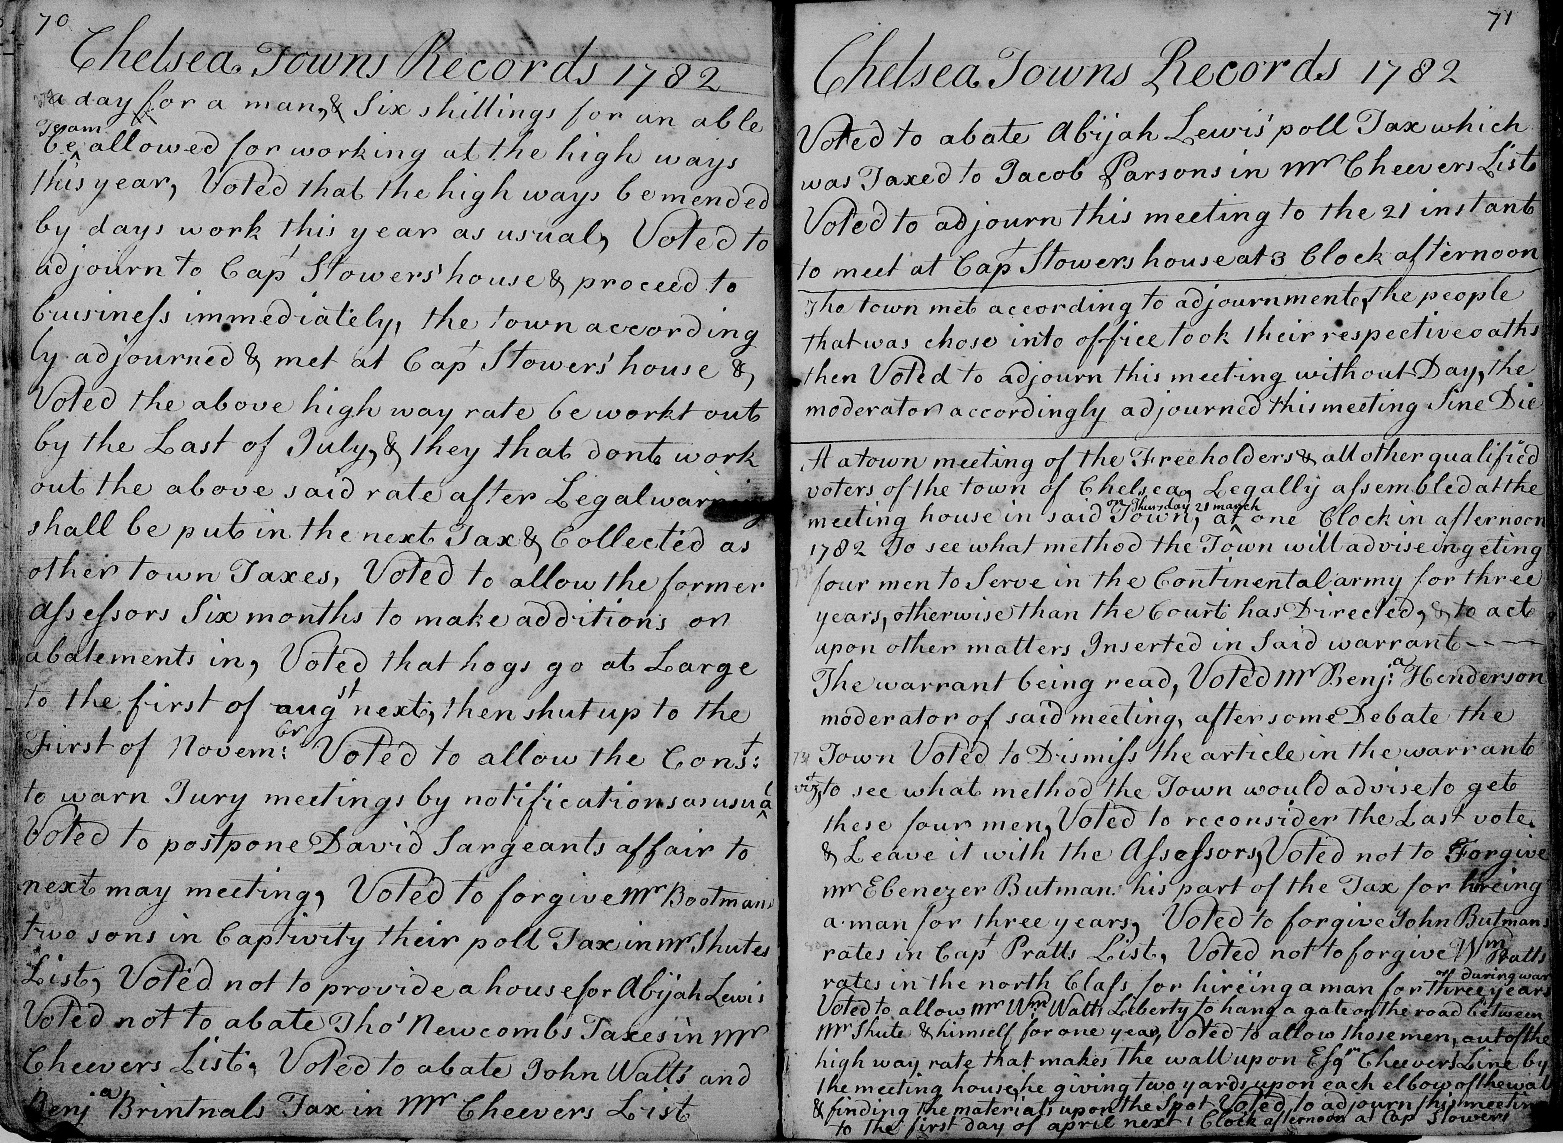 70
Chelsea Towns Records 1782
a day for a man, & Six shillings for an able
Team
be allowed for working at the high ways
this year, Voted that the high ways be mended
by days work this year as usual, Voted to
adjourn to Capt Stowers' house & proceed to
buisiness immediately, the town according
ly adjourned & met at Capt Stowers' house &,
Voted the above high way rate be workt out
by the Last of July, & they that dont work
out the above said rate after Legal warning
shall be put in the next Tax & Collected as
other town Taxes, Voted to allow the former
assessors Six months to make additions or
abatements in, Voted that hogs go at Large
to the first of augst next, then shut up to the
First of Novembr: Voted to allow the Const:
to warn Jury meetings by notifications as usual
Voted to postpone David Sargeants affair to
next may meeting, Voted to forgive Mr Bootmans
two sons in Captivity their poll Tax in Mr Shutes
List, Voted not to provide a house for Abijah Lewis
Voted not to abate Thos Newcombs Taxes in Mr
Cheevers List, Voted to abate John Watts and
Benja Brintnals Tax in Mr Cheevers List
71
Chelsea Towns Records 1782
Voted to abate Abijah Lewis' poll Tax which
was Taxed to Jacob Parsons in Mr Cheevers List
Voted to adjourn this meeting to the 21 instant
to meet at Capt Stowers house at 3 Clock afternoon
The town met according to adjournment, the people
that was chose into office took their respective oaths
then Voted to adjourn this meeting without Day, the
moderator accordingly adjourned this meeting Sine Die
At a town meeting of the Freeholders & all other qualified
voters of the town of Chelsea, Legally assembled at the
on Thursday 21 march
meeting house in said Town, at one Clock in afternoon
1782 To see what method the Town will advise in geting
four men to Serve in the Continental army for three
years, otherwise than the Court has Directed, & to act
upon other matters Inserted in Said warrant
The warrant being read, Voted Mr Benja Henderson
moderator of said meeting, after some Debate the
Town Voted to Dismiss the article in the warrant
vizt, to see what method the Town would advise to get
these four men, Voted to reconsider the Last vote
& Leave it with the Assessors, Voted not to Forgive
Mr Ebenezer Butman his part of the Tax for hireing
a man for three years, Voted to forgive John Butmans
rates in Capt Pratts List, Voted not to forgive Wm Pratts
rates in the north Class for hireing a man for three years
or during war
Voted to allow Mr Wm Watts Liberty to hang a gate on the road between
Mr Shute & himself for one year, Voted to allow those men, out of the
high way rate that makes the wall upon Esqr Cheevers Line by
the meeting house, he giving two yards upon each elbow of the wall
& finding the materials upon the Spot Voted to adjourn this meeting
to the first day of april next 1 Clock afternoon at Capt Stowers